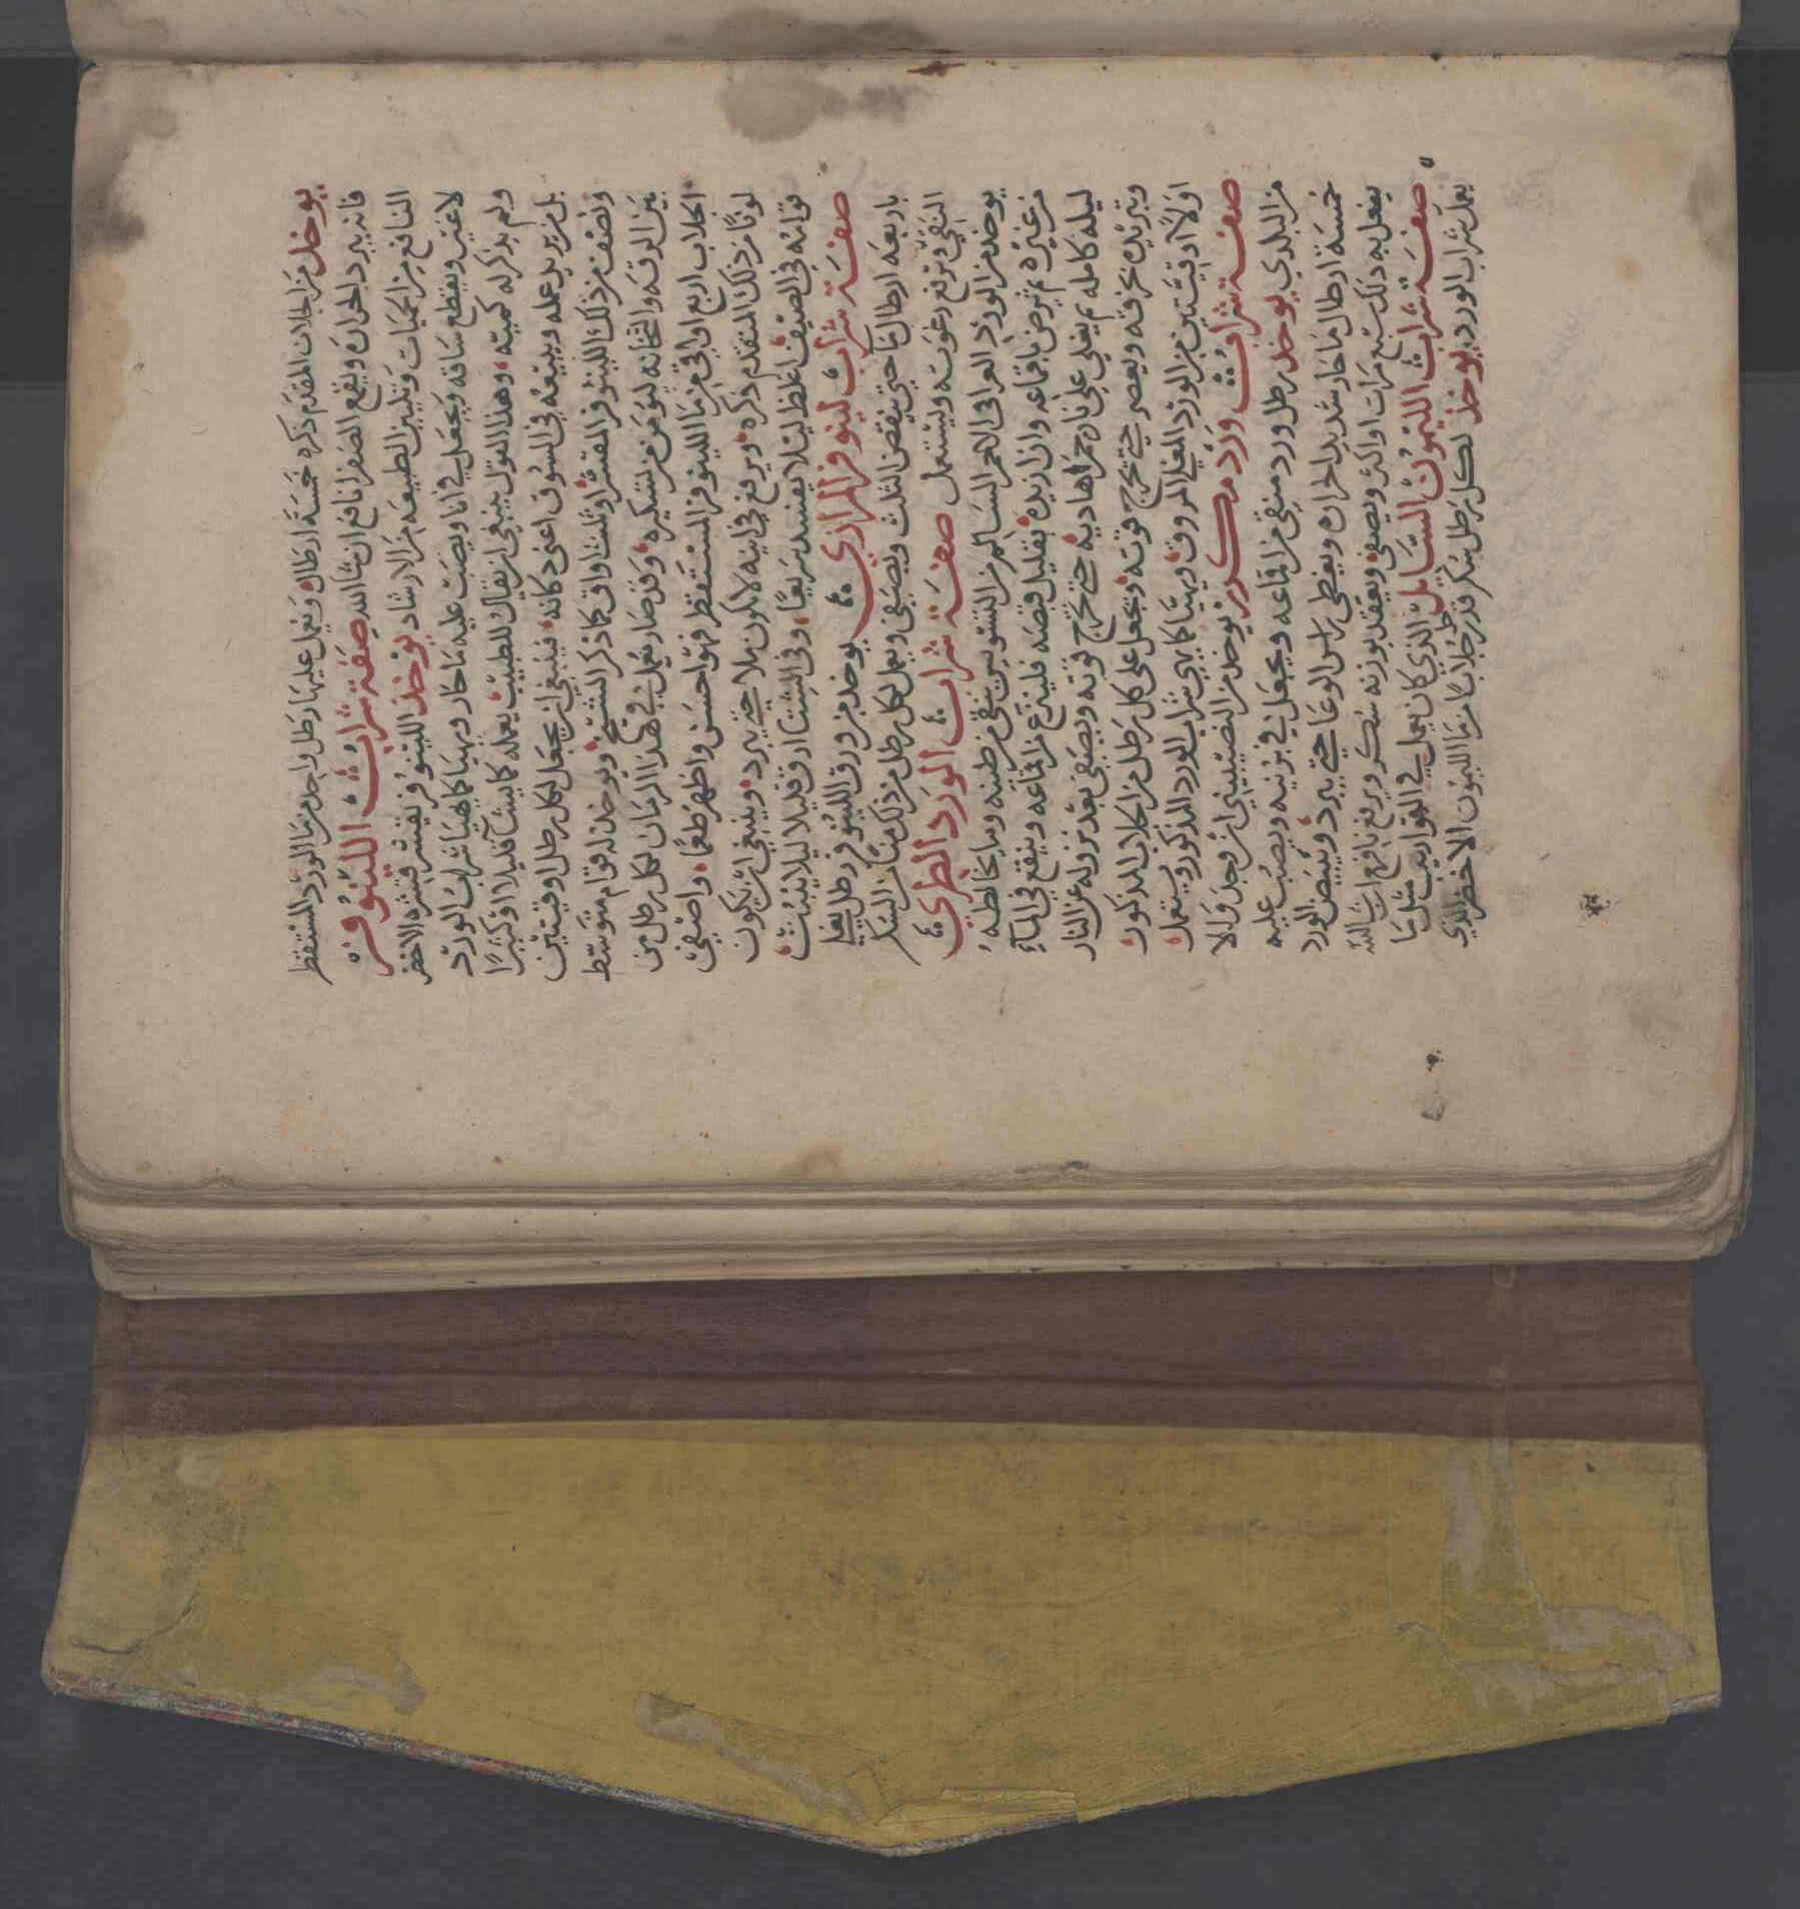 يوخذ من الجلاب المقدم ذكره خمسة ارطال ويعمل عليها رطل واحد من ما الورد المستقطر
فانه يبرد الحرارة ويقمع الصفرا نافع ان شا الله صفة شراب اللينوفر
النافع من الحميات وتليين الطبيعه من الارشاد يوخذ اللينوفر يقشر قشره الاخضر
لا غير ويقطع ساقه ويجعل في انا ويصب عليه ما حار ويهيا كما يهيا شراب الورد
ولم يذكر له كميته وهذا القول ينبغي ان يقال للطبيب يعمله كما يشا قليلا او كثيرا
بل من يريد عمله ويبيعه في السوق اعني دكانه فينبغي ان يجعل لكل رطل اوقيتين
ونصف من ذلك اللينوفر المقشر او ثلث اواق كما ذكر الشيخ ويوخذ له قوام متوسط
بين الرقه والثخانه ليؤمن من تسكيره وقد صار يعمل في هذا الزمان لكل رطل من
الجلاب اربع اواقي من ما اللينوفر المستقطر فهو احسن واظهر طعما واصفى
لونا من ذلك المتقدم ذكره ويرفع في انيه لا تكون ملا حتى يبرد وينبغي ان يكون
قوامه في الصيف اغلظ ليلا يفسد سريعا وفي الشتا ارق قليلا ليلا ينبت
صفة شراب لينوفر المرازي يوخذ من ورق اللينوفر رطل يغلى
باربعه ارطال ما حتى ينقص الثلث ويصفى ويعمل لكل رطل من ذلك منا من السكر
النقي وترفع رغوته ويستعمل صفة شراب الورد الطري
يوخذ من الورد العراقي الاحمر السالم من ينقى من طينه وما يخالطه
من غيره ثم يرض باقماعه وان اريد تقليل قبضه فلينزع من اقماعه وينقع في الماء
ليله كامله ثم يغلى على نار جمر هاديه حتى تخرج قوته ويصفى بعد نزوله عن النار
وتبريده بخرقه ويعصر حتى تخرج قوته ويجعل على كل رطل من الجلاب المذكور
اولا اوقيتين من الورد المغلي المروق ويهيا كما يهيى شراب الورد المذكور ويستعمل
صفة شراب ورد مكرر يوخذ من النصيبيني ان وجد والا
من البلدي يوخذ رطل ورد منقى من اقماعه ويجعل في برنيه ويصب عليه
خمسة ارطال ما حار شديد الحراره ويغطى راس الوعا حتى يبرد ويبيض الورد
يفعل به ذلك سبع مرات او اكثر ويصفى ويعقد بوزنه سكر ويرفع نافع ان شا الله
صفة شراب الليمون السايل الذي كان يعمل في مثل ما
يعمل شراب الورد يوخذ لكل رطل سكر قدر جلابا من ما الليمون الاخضر الذي